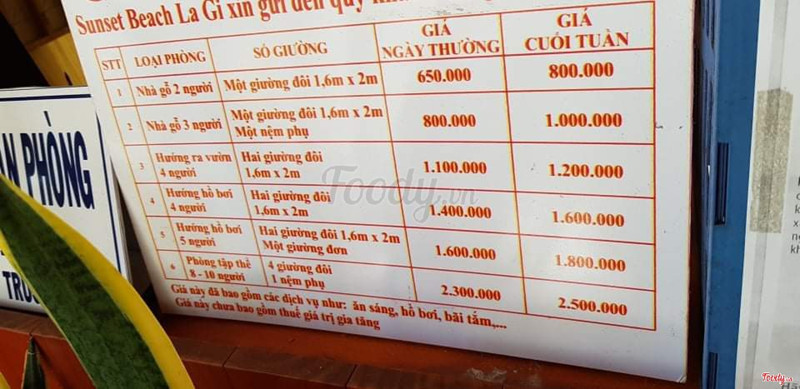 Sunset Beach La Gi xin gửi đến quý
STT LOẠI PHÒNG SỐ GIƯỜNG GIÁ NGÀY THƯỜNG GIÁ CUỐI TUẦN
1 Nhà gỗ 2 người Một giường đôi 1,6m x 2m 650.000 800.000
2 Nhà gỗ 3 người Một giường đôi 1,6m x 2m 800.000 1.000.000
Một nệm phụ
3 Hướng ra vườn Hai giường đôi 1.100.000 1.200.000
4 người 1,6m x 2m
4 Hướng hồ bơi Hai giường đôi 1.400.000 1.600.000
4 người 1,6m x 2m
5 Hướng hồ bơi Hai giường đôi 1,6m x 2m 1.600.000 1.800.000
5 người Một giường đơn
6 Phòng tập thể 4 giường đôi 2.300.000 2.500.000
8 - 10 người 1 nệm phụ
Giá này đã bao gồm các dịch vụ như: ăn sáng, hồ bơi, bãi tắm,...
Giá này chưa bao gồm thuế giá trị gia tăng
PHÒNG
Foody.vn
Foody.vn